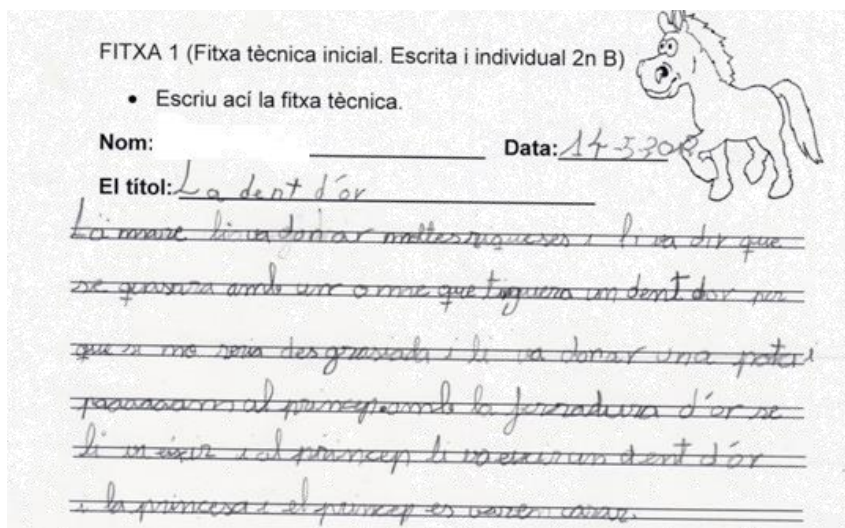 FITXA 1 (Fitxa tècnica inicial. Escrita i individual 2n B)
• Escriu ací la fitxa tècnica.
Nom: Data: 14-5-
El títol: La dent d'or
La mare li va donar moltes riqueses i li va dir que
se amb un ome que tinguera un dent dor per
que si no seria desgrasiada i li va donar una pota i
al princep amb la ferradura d'or se
li va eixir i al princep li va eixir un dent d'or
i la princesa i el princep es varen casar.